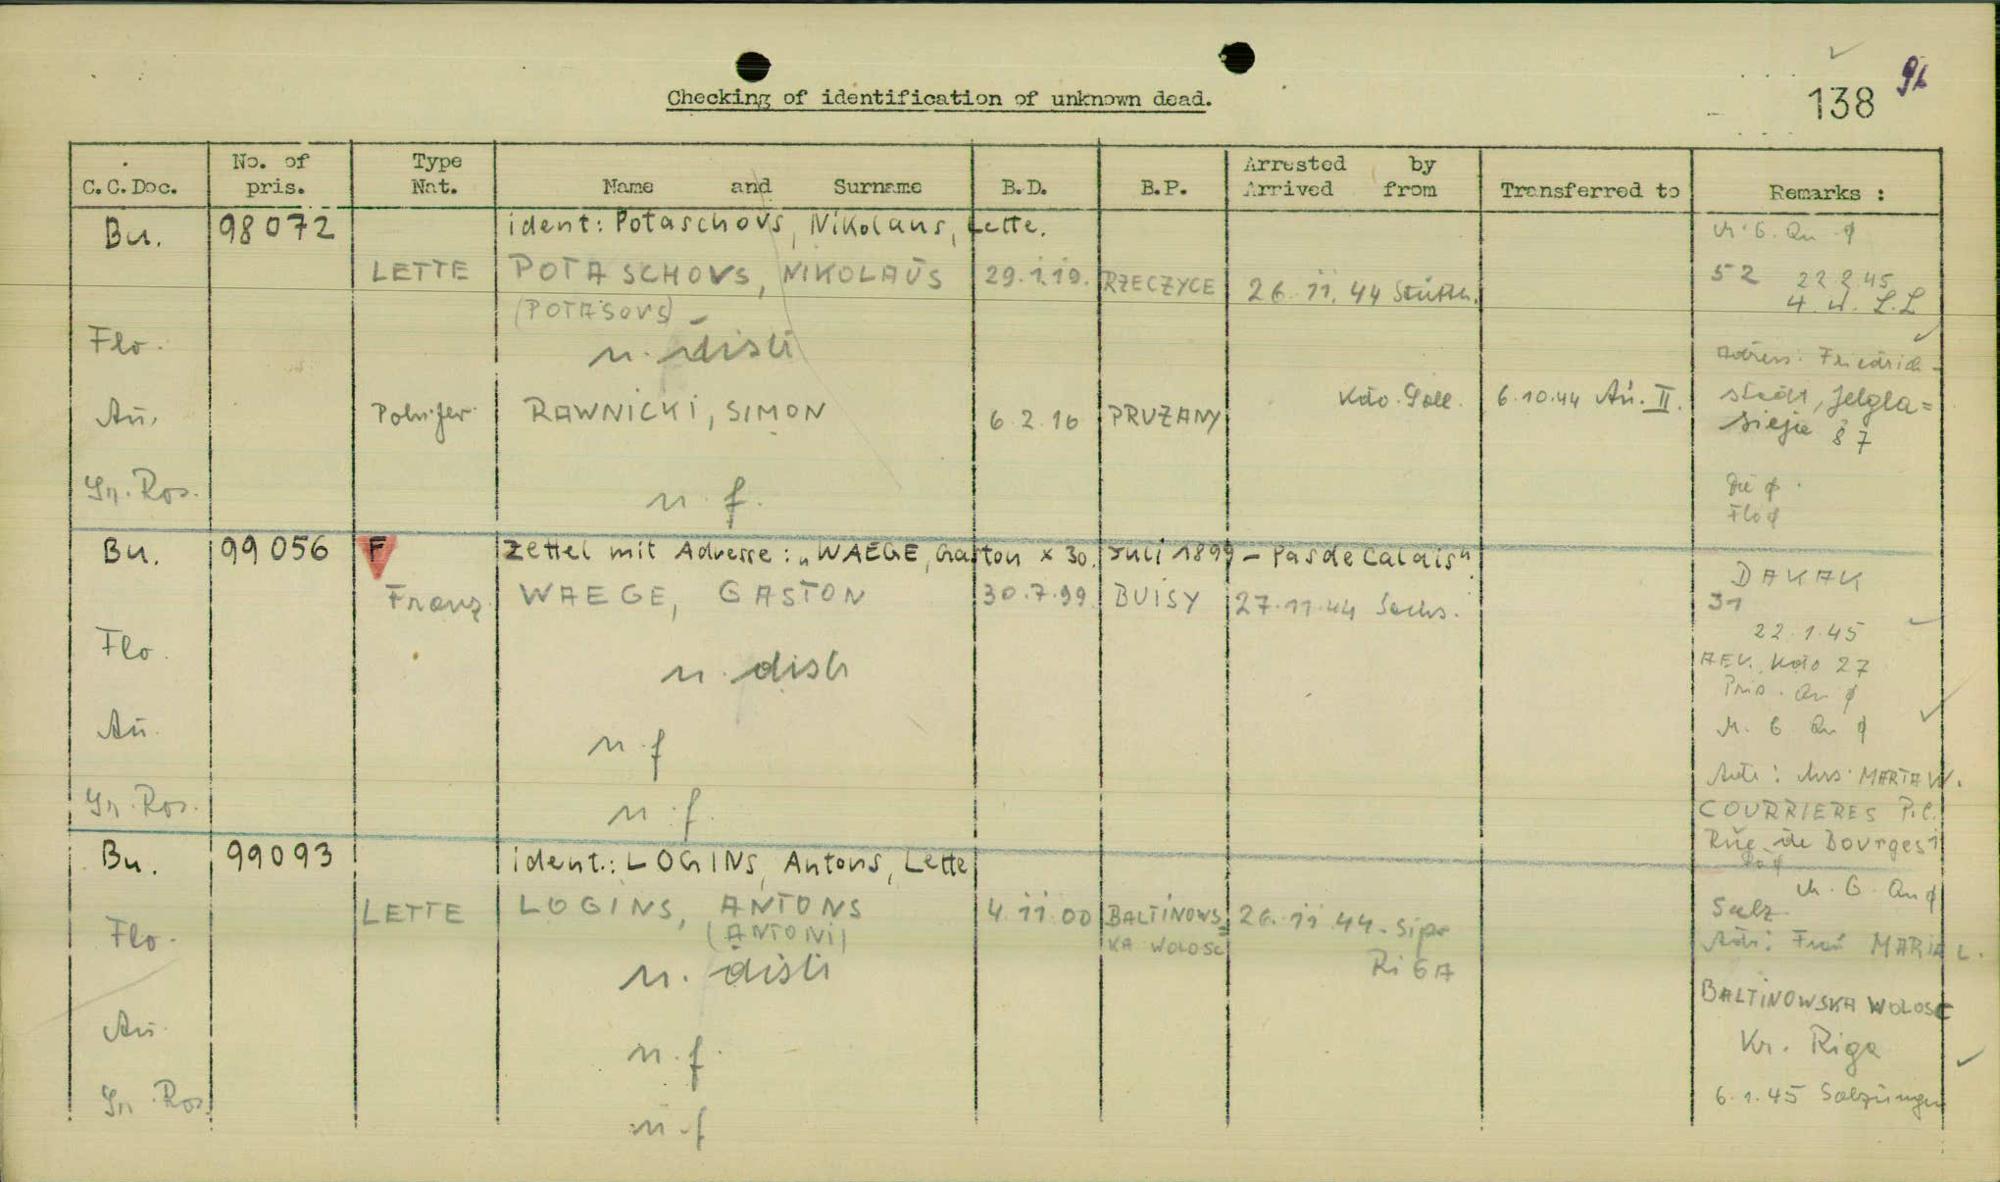 138 96
Checking of identification of unknown dead.
C.C.Doc. No. of pris. Type Nat. Name and Surname B.D. B.P. Arrested by Arrived from Transferred to Remarks :
Bu. 98072 ident: Potaschovs, Nikolaus, Lette.
LETTE POTASCHOVS, NIKOLAUS 29.1.19. RZECZYCE 26.11.44 52 22.2.45
(POTASOVS) 4. L.L
Flo. n. disti Friedrich-
Au. RAWNICKI, SIMON 6.2.16 PRUZANY Kdo. 6.10.44 Au. II. stadt, Jelgla=
sieje 87
Gr. Ros. n.f. Flo ϕ
Bu. 99056 F Zettel mit Adresse: „WAEGE, Gaston × 30. Juli 1899 – Pas de Calais"
Franz. WAEGE, GASTON 30.7.99. BUISY 27.11.44 Sachs. DAKAK
31
Flo. n. disti 22.1.45
Kdo 27
Au. n.f M. G Qu ϕ
MARTA W.
Gr. Ros. n.f. COURRIERES P.C.
Rue de Bourges 1
Bu. 99093 ident.: LOGINS, Antons, Lette
LETTE LOGINS, ANTONS 4.11.00 BALTINOWS= 26.11.44. Sipo M. G. Qu ϕ
(ANTONI) KA WOLOSC RIGA Salz.
Flo. n. disti Adr: Frau MARIA L.
BALTINOWSKA WOLOSC
Au. n.f. Kr. Riga
Gr. Ros. n.f 6.1.45 Salzungen